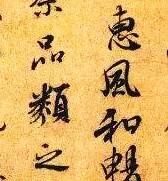 惠風和暢
品類之